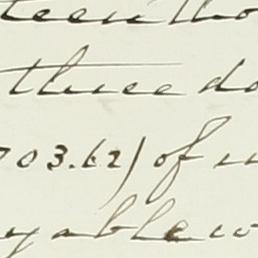 teen tho
three do
703.62) of
yable w